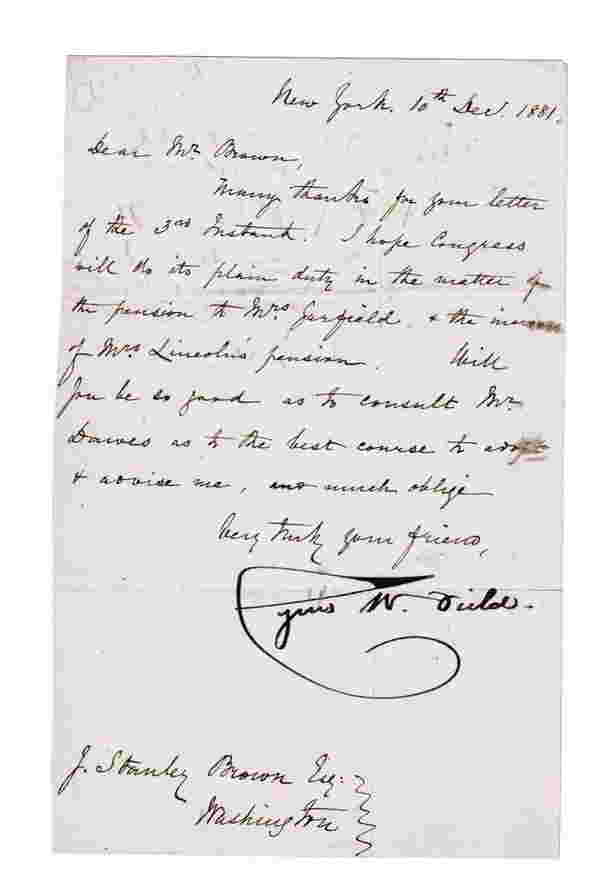 New York. 10th Dec. 1881.
Dear Mr. Brown,
Many thanks for your letter
of the 3rd Instant. I hope Congress
will do its plain duty in the matter of
the pension to Mrs Garfield & the increase
of Mrs Lincoln's pension. Will
you be so good as to consult Mr.
Dawes as to the best course to adopt
& advise me, and much oblige
Very truly your friend,
Cyrus W. Field.
J. Stanley Brown Esq:
Washington